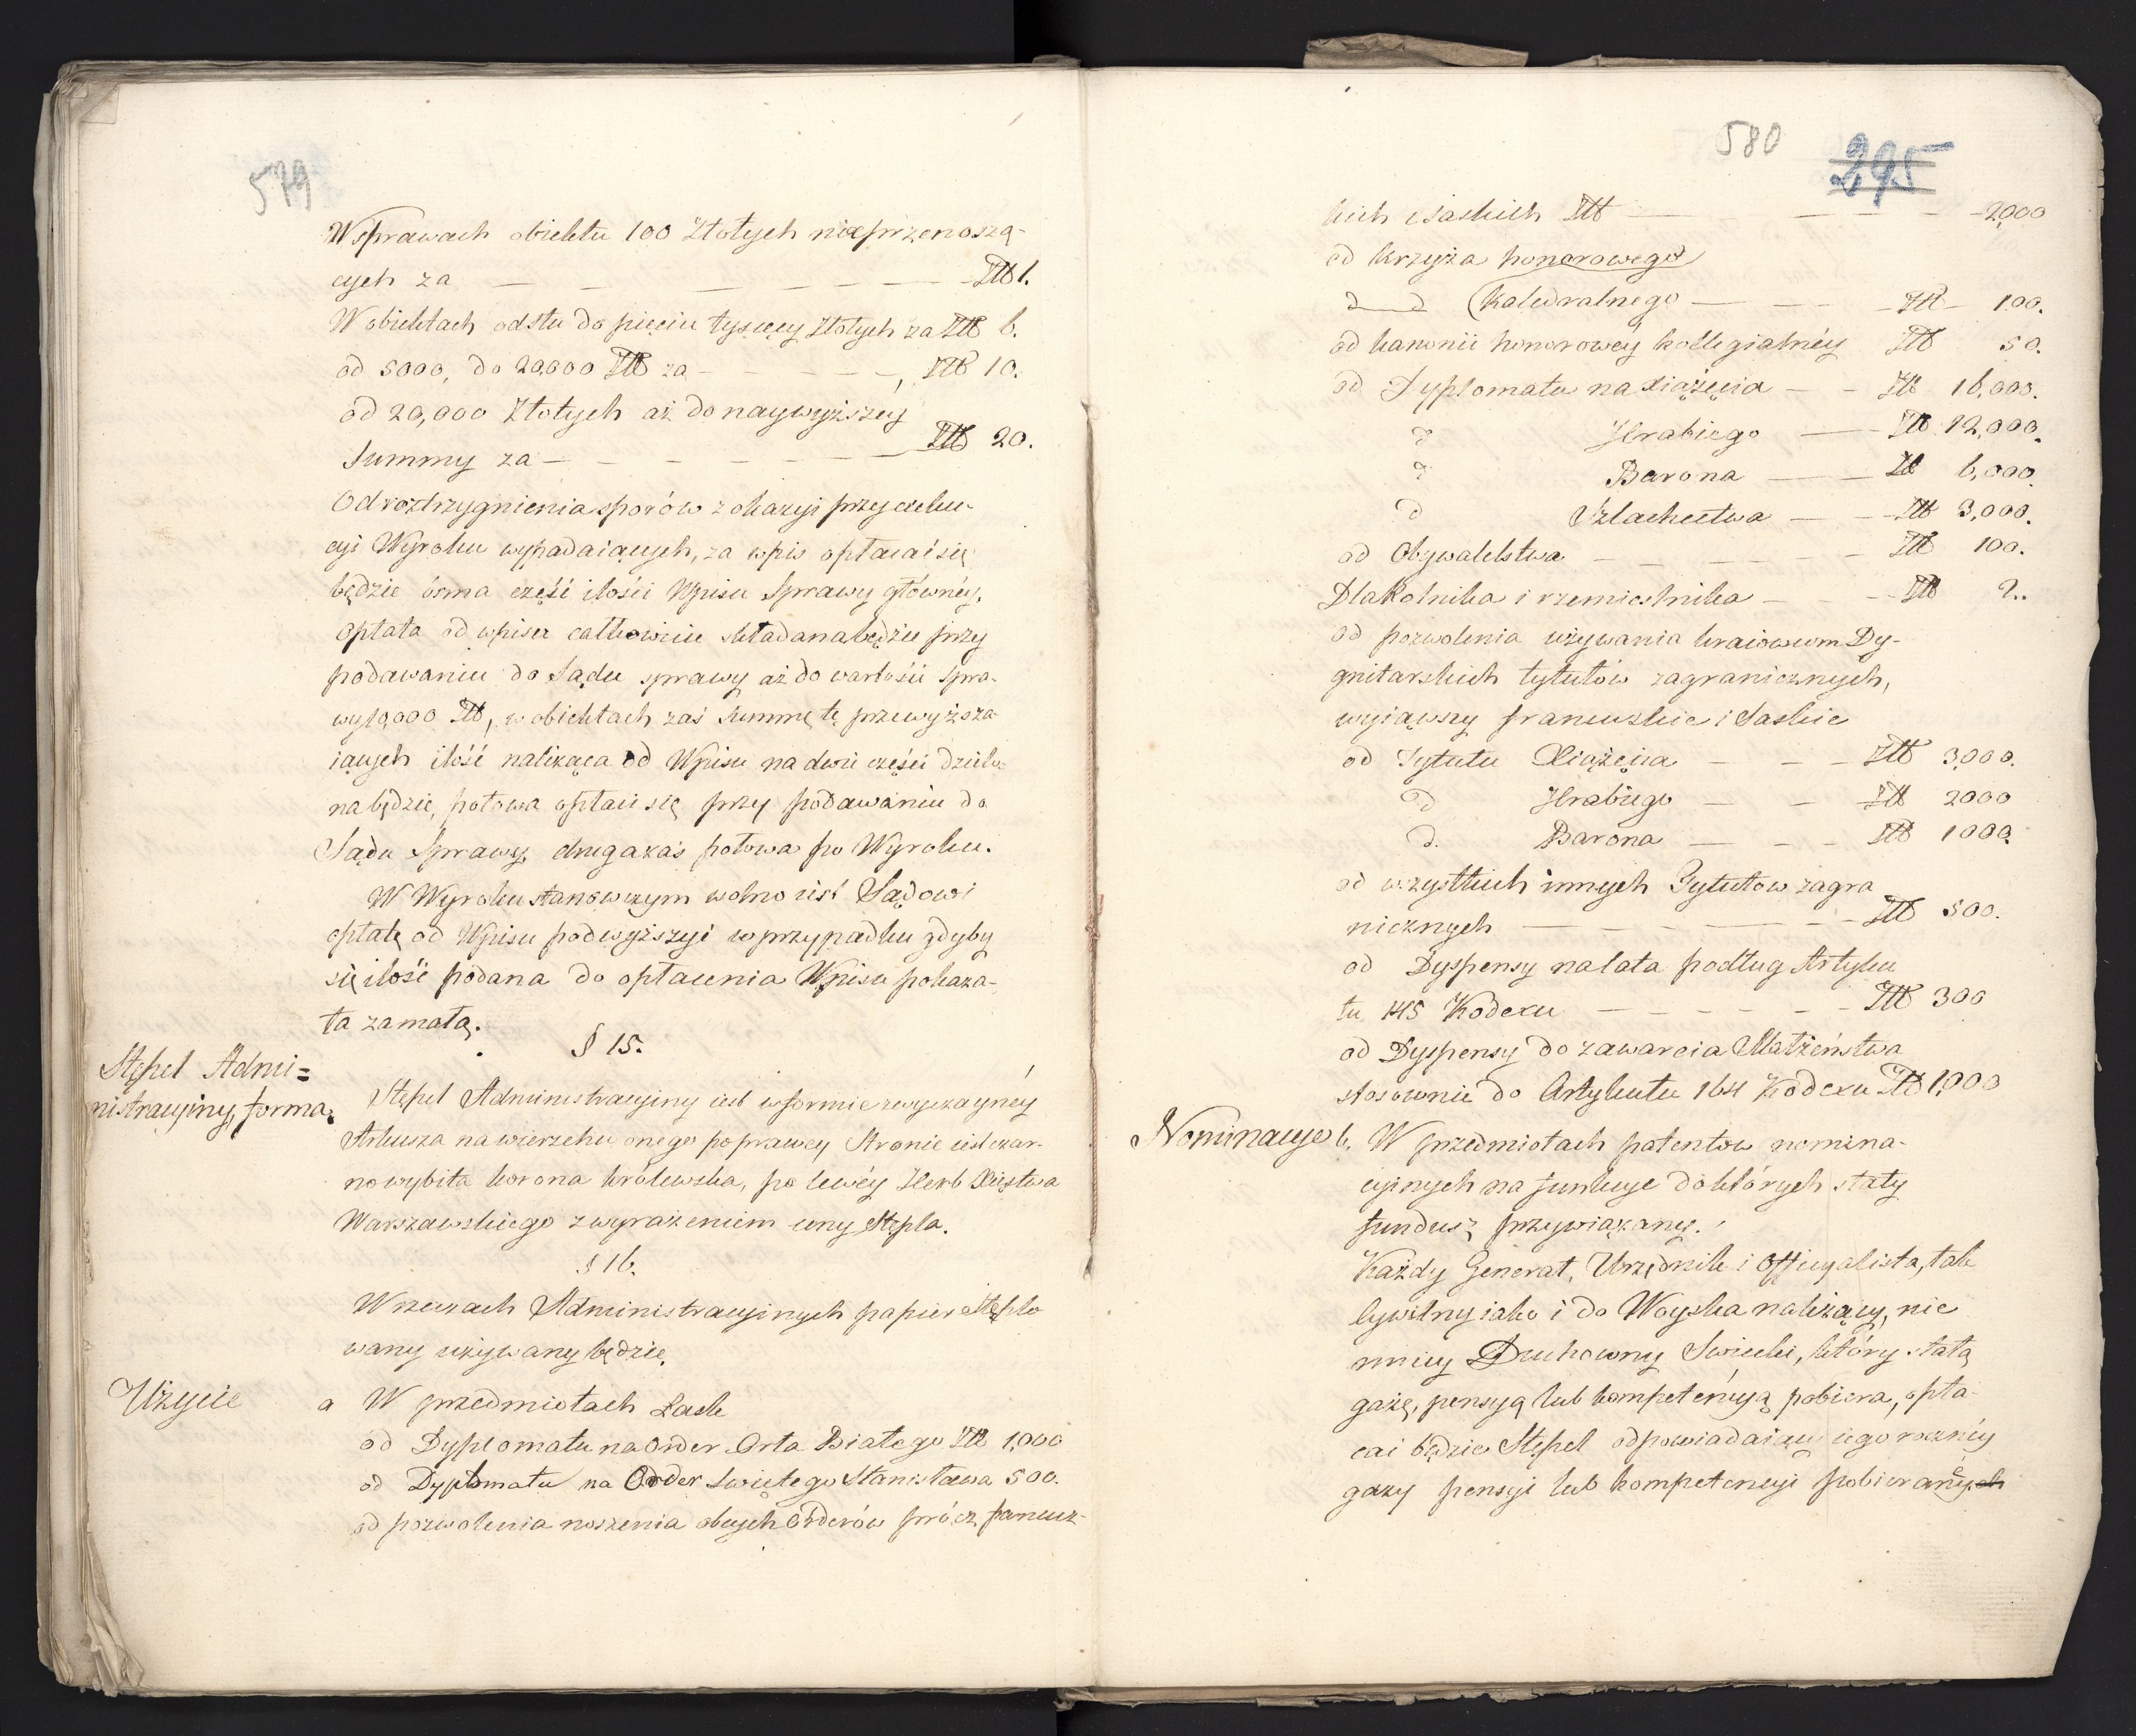 579
W sprawach obiektu 100 Złotych nieprzenoszą-
cych za — — — — — — Złł 1.
W obiektach od stu do pięciu tysięcy złotych za Złł 6.
od 5000, do 20,000 Złł za - - - - - , Złł 10.
od 20,000 Złotych aż do naywyższey
Summy za — - - - - - - Złł 20.
Od roztrzygnienia sporów z okazyi przy exeku-
cyi Wyroku wypadaiących, za wpis opłacać się
będzie ósma część ilości Wpisu Sprawy główney,
opłata od wpisu całkowicie składana będzie przy
podawaniu do Sądu sprawy aż do wartości spra-
wy 10,000 Złł, w obiektach zaś Summę tę przewyższa-
iących ilość należąca od Wpisu na dwie części dzielo-
na będzie, połowa opłaci się przy podawaniu do
Sądu Sprawy, druga zaś połowa po Wyroku.
W Wyroku stanowczym wolno iest Sądowi
opłatę od Wpisu podwyższyć w przypadku gdyby
się ilość podana do opłacenia Wpisu pokaza-
ła zamałą.
§ 15.
Stępel Admi=
nistracyiny, forma.
Stępel Administracyiny iest w formie zwyczayney
Arkusza na wierzchu onego po prawey Stronie iest czar-
no wybita korona królewska, po lewéy Herb Xięstwa
Warszawskiego z wyrażeniem ceny Stępla.
§ 16.
W rzeczach Administracyinych papier Stęplo
wany używany będzie.
Użycie
a W przedmiotach Łask
od Dyplomatu na Order Orła Białego Złł 1,000
od Dyplomatu na Order Swiętego Stanisława 500.
od pozwolenia noszenia obcych Orderów prócz francuz-
580
295
kich i Saskich Złł — — — — 2,000
od krzyża honorowego
d d Katedralnego — — — Złł — 100.
od kanonii honorowey kollegialnéy Złł 50.
od Dyplomatu na Xiążęcia — — Złł 16,000.
d Hrabiego — — Złł 12,000.
d Barona — — Zł 6,000.
d Szlachectwa — — Złł 3,000.
od Obywatelstwa — — — — Złł 100.
Dla Rolnika i rzemieslnika — — — Złł 2..
od pozwolenia używania kraiowcom Dy-
gnitarskich tytułów zagranicznych,
wyiąwszy francuzkie i Saskie
od Tytułu Xiążęcia — — — Złł 3,000.
d Hrabiego — — Złł 2000
d. Barona — — — Złł 1000.
od wszystkich innych Tytułow zagra
nicznych — — — — — Złł 500.
od Dyspensy na lata podług Artyku
łu 145 Kodexu — — — — — Złł 300
od Dyspensy do zawarcia Małżeństwa
stosownie do Artykułu 164 Kodexu Złł 1,000
Nominacye b. W przedmiotach patentow nomina-
cyinych na funkcye do których stały
fundusz przywiązany.
Każdy Generał, Urzędnik i Officyalista, tak
Cywilny iako i do Woyska należący, nie
mniey Duchowny Swiecki, który stałą
gażę, pensyą lub kompetencyą pobiera, opła-
cać będzie Stępel odpowiadaiący iego roczney
gaży pensyi lub kompetencyi pobieraney